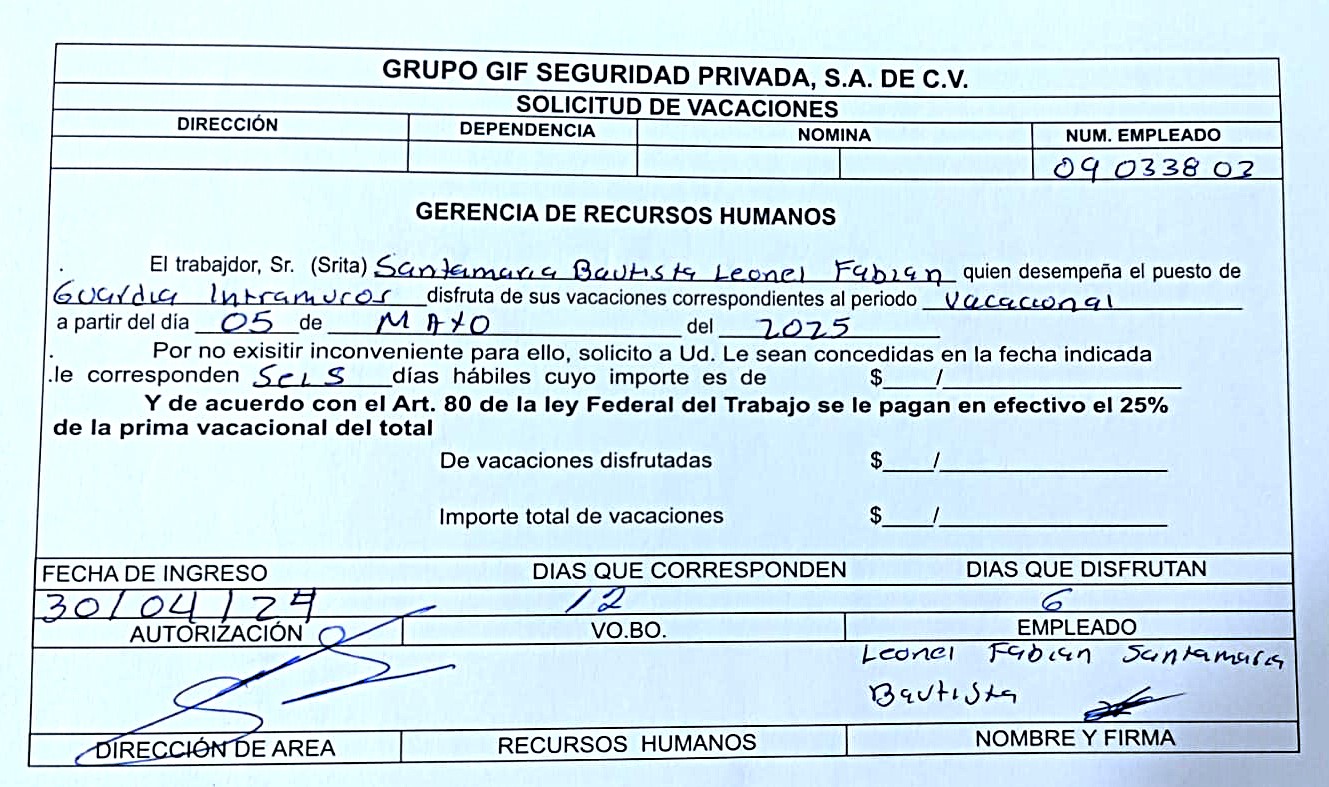 GRUPO GIF SEGURIDAD PRIVADA, S.A. DE C.V.
SOLICITUD DE VACACIONES
DIRECCIÓN DEPENDENCIA NOMINA NUM. EMPLEADO
09033802
GERENCIA DE RECURSOS HUMANOS
El trabajdor, Sr. (Srita) Santamaria Bautista Leonel Fabian quien desempeña el puesto de
Guardia Intramuros disfruta de sus vacaciones correspondientes al periodo Vacacional
a partir del día 05 de MAYO del 2025
Por no exisitir inconveniente para ello, solicito a Ud. Le sean concedidas en la fecha indicada
.le corresponden Seis días hábiles cuyo importe es de $ /
Y de acuerdo con el Art. 80 de la ley Federal del Trabajo se le pagan en efectivo el 25%
de la prima vacacional del total
De vacaciones disfrutadas $ /
Importe total de vacaciones $ /
FECHA DE INGRESO DIAS QUE CORRESPONDEN DIAS QUE DISFRUTAN
30/04/24 12 6
AUTORIZACIÓN VO.BO. EMPLEADO
Leonel Fabian Santamaria
Bautista
DIRECCIÓN DE AREA RECURSOS HUMANOS NOMBRE Y FIRMA